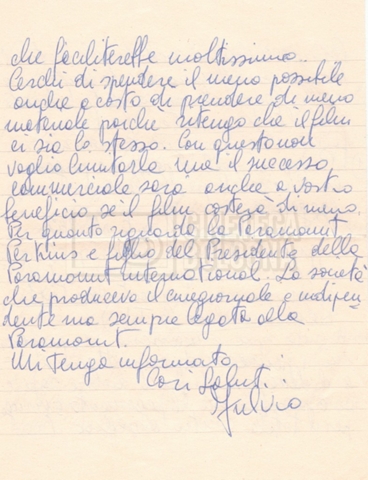 che faciliterebbe moltissimo.
Cerchi di spendere il meno possibile
anche a costo di prendere di meno
materiale poiché ritengo che il film
ci sia lo stesso. Con questo non
voglio limitarla ma il successo
commerciale sarà anche a vostro
beneficio se il film costerà di meno.
Per quanto riguarda la Paramount
Perkins è figlio del Presidente della
Paramount International. La società
che produceva il cinegiornale è indipen-
dente ma sempre legata alla
Paramount.
Mi tenga informato
Cari saluti
Fulvio